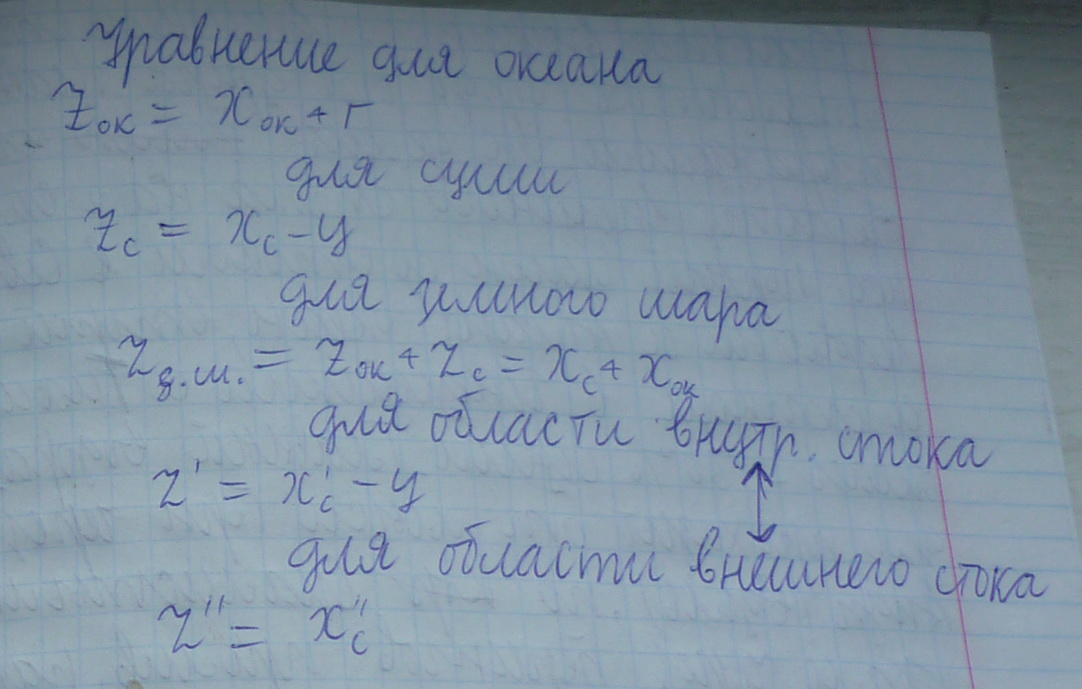 Уравнение для океана
Zок = Xок + г
для суши
Zс = Xс - У
для земного шара
Zз.ш. = Zок + Zс = Xс + Xок
для области внутр. стока
Z' = X'с - У
для области внешнего стока
Z'' = X''с